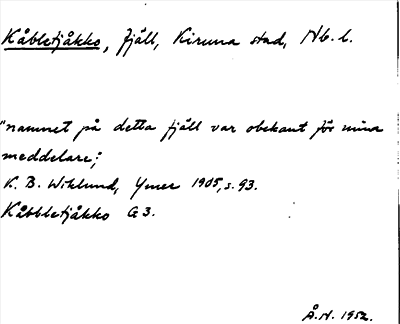 Kåbletjåkko, fjäll, Kiruna stad, Nb. l.
"namnet på detta fjäll var obekant för mina
meddelare;
K. B. Wiklund, Ymer 1905, s. 93.
Kåbbletjåkko G3.
Å.N. 1952.